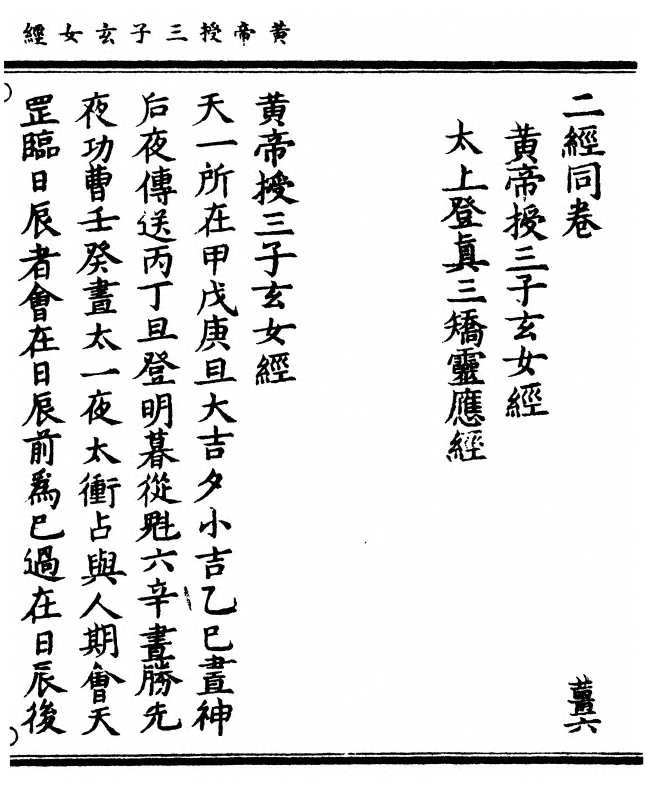 黃帝授三子玄女經
二經同卷
黃帝授三子玄女經
太上登眞三矯靈應經
薑六
黃帝授三子玄女經
天一所在甲戊庚旦大吉夕小吉乙巳晝神
后夜傳送丙丁旦登明暮從魁六辛晝勝先
夜功曹壬癸晝太一夜太衝占與人期會天
罡臨日辰者會在日辰前爲已過在日辰後